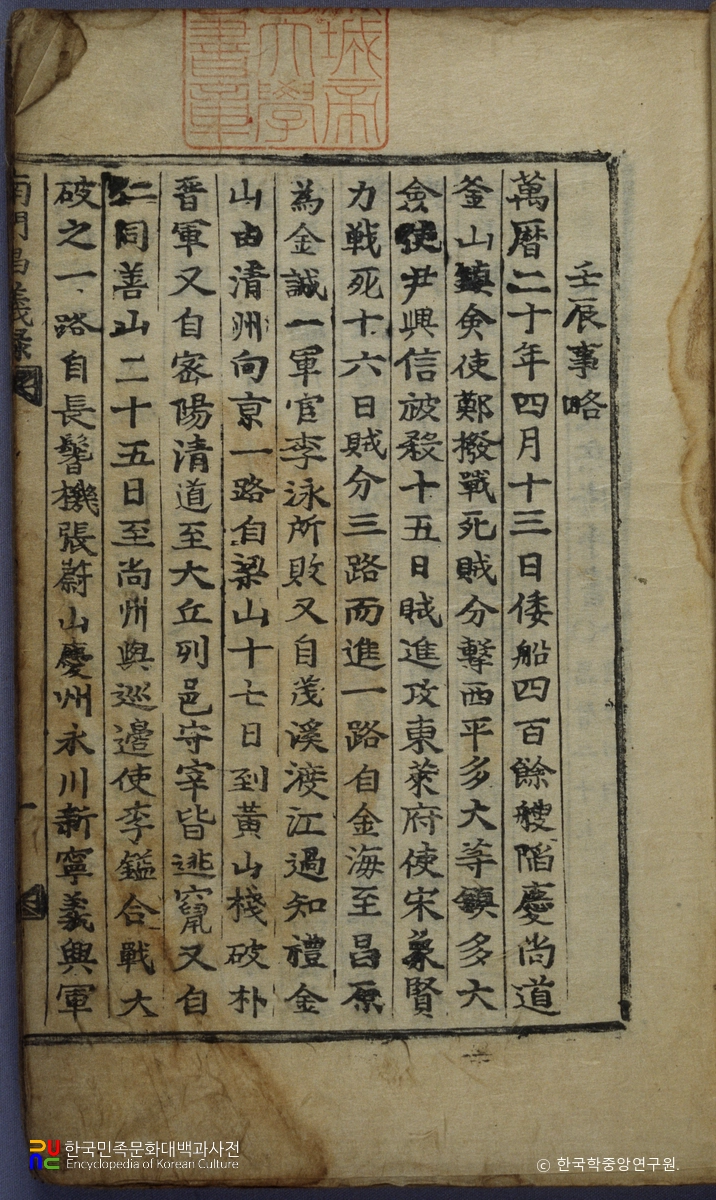 壬辰事略
萬曆二十年四月十三日倭船四百餘艘陷慶尚道
釜山鎮僉使鄭撥戰死賊分擊西平多大等鎮多大
僉使尹興信被殺十五日賊進攻東萊府使宋象賢
力戰死十六日賊分三路而進一路自金海至昌原
為金誠一軍官李泳所敗又自茂溪渡江過知禮金
山由清州向京一路自梁山十七日到黃山棧破朴
晋軍又自密陽清道至大丘列邑守宰皆逃竄又自
仁同善山二十五日至尚州與巡邊使李鎰合戰大
破之一路自長鬐機張蔚山慶州永川新寧義興軍
南門昌義錄
一
城帝
大學
書章
한국민족문화대백과사전
Encyclopedia of Korean Culture
© 한국학중앙연구원.